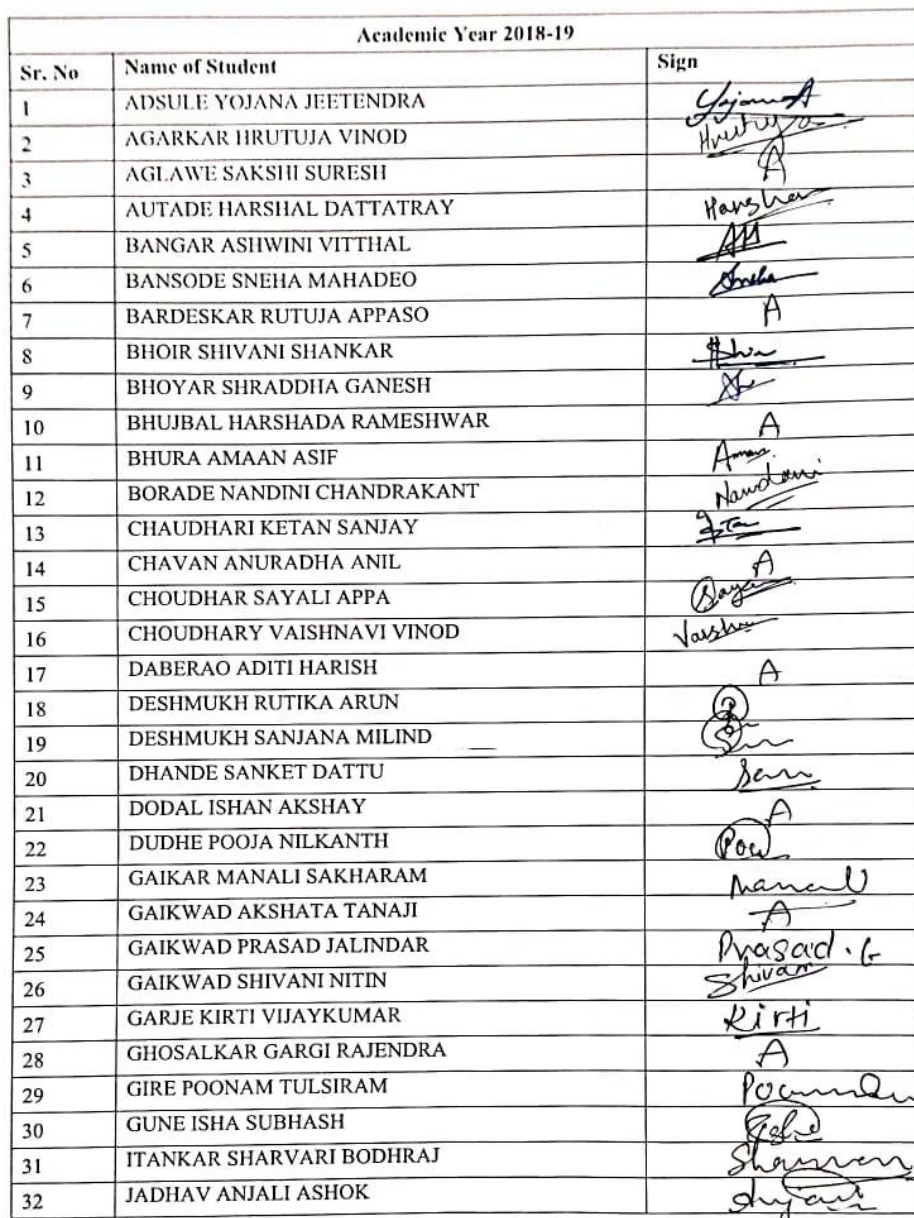 Academic Year 2018-19
Sr. No Name of Student Sign
1 ADSULE YOJANA JEETENDRA
2 AGARKAR HRUTUJA VINOD Hrutuja
3 AGLAWE SAKSHI SURESH A
4 AUTADE HARSHAL DATTATRAY Harshal
5 BANGAR ASHWINI VITTHAL
6 BANSODE SNEHA MAHADEO Sneha
7 BARDESKAR RUTUJA APPASO A
8 BHOIR SHIVANI SHANKAR
9 BHOYAR SHRADDHA GANESH
10 BHUJBAL HARSHADA RAMESHWAR A
11 BHURA AMAAN ASIF
12 BORADE NANDINI CHANDRAKANT
13 CHAUDHARI KETAN SANJAY
14 CHAVAN ANURADHA ANIL A
15 CHOUDHAR SAYALI APPA
16 CHOUDHARY VAISHNAVI VINOD
17 DABERAO ADITI HARISH A
18 DESHMUKH RUTIKA ARUN
19 DESHMUKH SANJANA MILIND
20 DHANDE SANKET DATTU
21 DODAL ISHAN AKSHAY A
22 DUDHE POOJA NILKANTH
23 GAIKAR MANALI SAKHARAM
24 GAIKWAD AKSHATA TANAJI A
25 GAIKWAD PRASAD JALINDAR Prasad . G
26 GAIKWAD SHIVANI NITIN
27 GARJE KIRTI VIJAYKUMAR Kirti
28 GHOSALKAR GARGI RAJENDRA A
29 GIRE POONAM TULSIRAM
30 GUNE ISHA SUBHASH
31 ITANKAR SHARVARI BODHRAJ
32 JADHAV ANJALI ASHOK